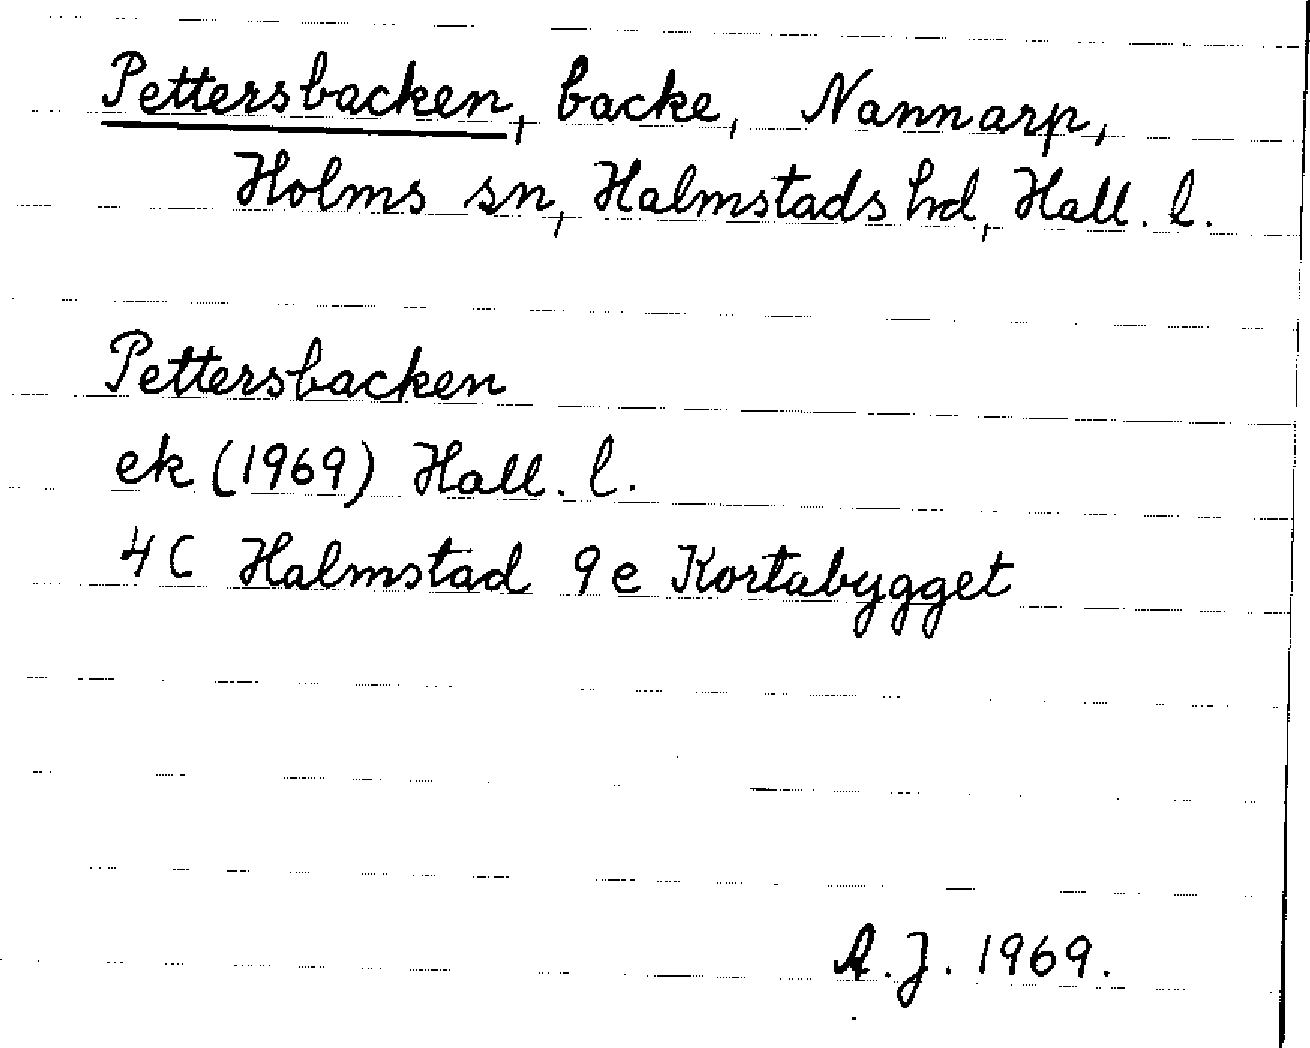 Pettersbacken, backe, Nannarp,
Holms sn, Halmstads hd, Hall. l.
Pettersbacken
ek (1969) Hall. l.
4C Halmstad 9e Kortabygget
A.J. 1969.